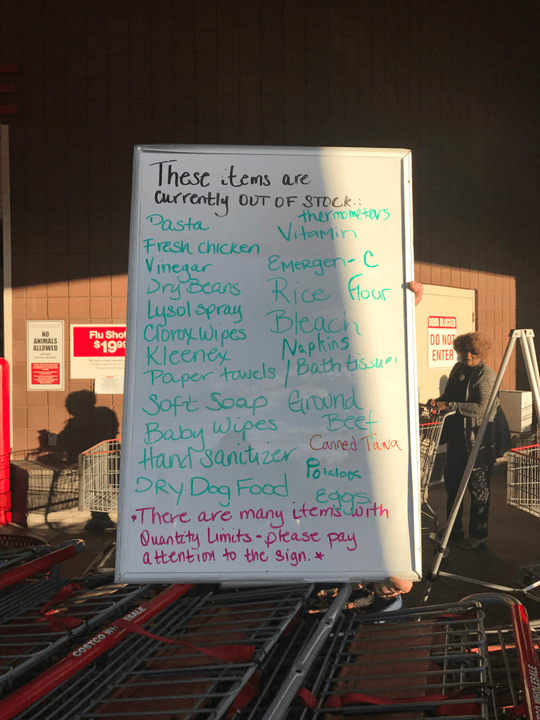 These items are
currently OUT OF STOCK:
thermometers
Pasta
Vitamin
Fresh chicken
Emergen-C
Vinegar
Dry Beans
Rice Flour
Lysol spray
Bleach
Clorox Wipes
Napkins
Kleenex
Paper towels / Bath tissue
Soft Soap
Ground
Beef
Baby Wipes
Canned Tuna
Hand Sanitizer
Potatoes
DRY Dog Food
Eggs
*There are many items with
Quantity Limits - please pay
attention to the sign. *
NO
ANIMALS
ALLOWED
Flu Shot
$19.99
DOOR BLOCKED
DO NOT
ENTER
COSTCO WHOLESALE